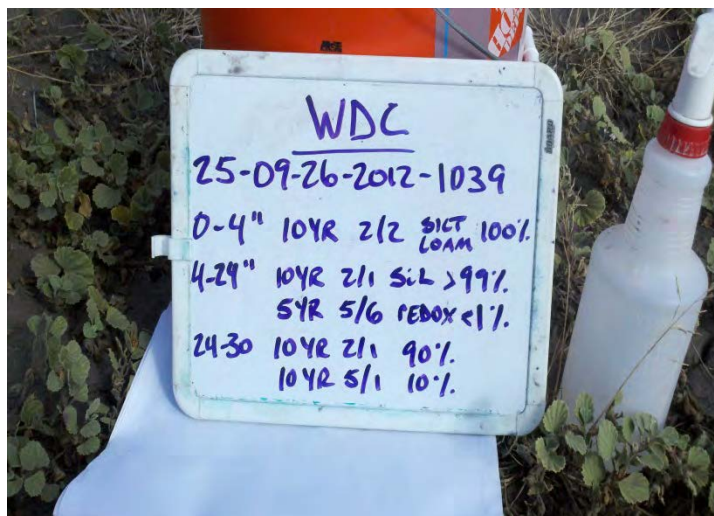 WDC
25-09-26-2012-1039
0-4" 10YR 2/2 SILT LOAM 100%
4-24" 10YR 2/1 SiL >99%
5YR 5/6 REDOX <1%
24-30 10YR 2/1 90%
10YR 5/1 10%
BOARD